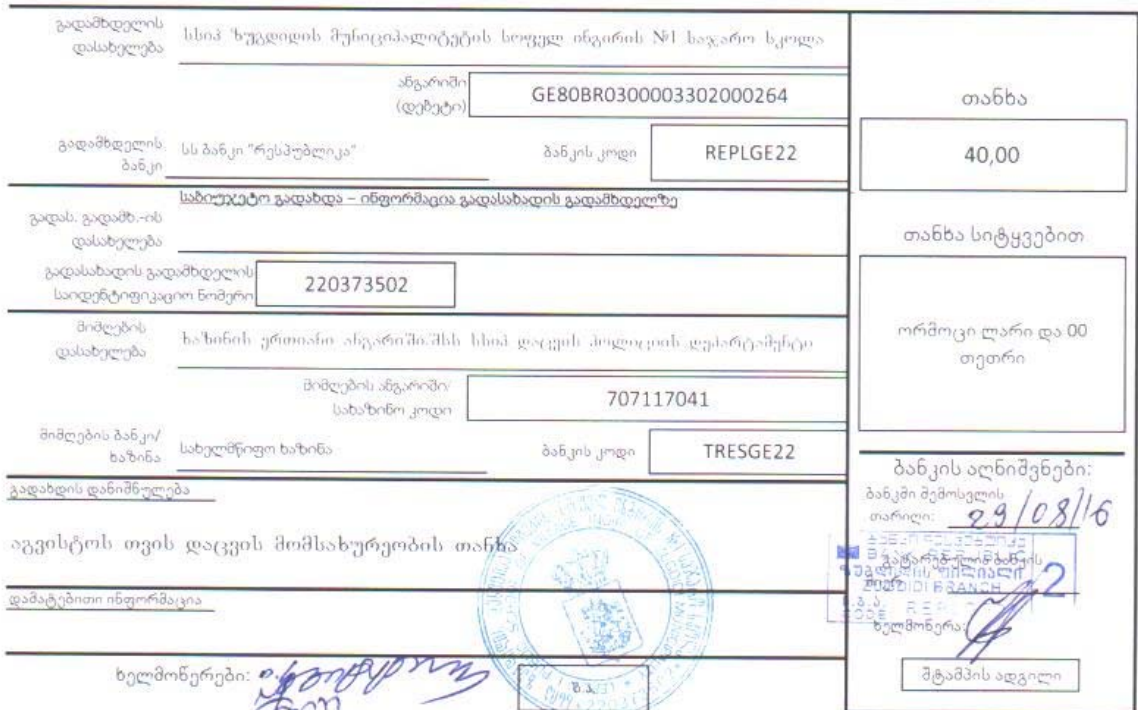 გადამხდელის დასახელება
სსიპ ზუგდიდის მუნიციპალიტეტის სოფელ ინგირის №1 საჯარო სკოლა
ანგარიში (დებეტი)
GE80BR0300003302000264
გადამხდელის ბანკი
სს ბანკი "რესპუბლიკა"
ბანკის კოდი
REPLGE22
თანხა
40,00
საბიუჯეტო გადახდა – ინფორმაცია გადასახადის გადამხდელზე
გადას. გადამხ.-ის დასახელება
გადასახადის გადამხდელის საიდენტიფიკაციო ნომერი
220373502
თანხა სიტყვებით
ორმოცი ლარი და 00
თეთრი
მიმღების დასახელება
ხაზინის ერთიანი ანგარიში.შსს სსიპ დაცვის პოლიციის დეპარტამენტი
მიმღების ანგარიში/ სახაზინო კოდი
707117041
მიმღების ბანკი/ ხაზინა
სახელმწიფო ხაზინა
ბანკის კოდი
TRESGE22
გადახდის დანიშნულება
აგვისტოს თვის დაცვის მომსახურეობის თანხა
დამატებითი ინფორმაცია
ხელმოწერები:
ბ.ა.
ბანკის აღნიშვნები:
ბანკში შემოსვლის
თარიღი: 29/08/16
გატარებულია ბანკის
ზუგდიდის ფილიალი
ZUGDIDI BRANCH
2
ხელმოწერა:
შტამპის ადგილი